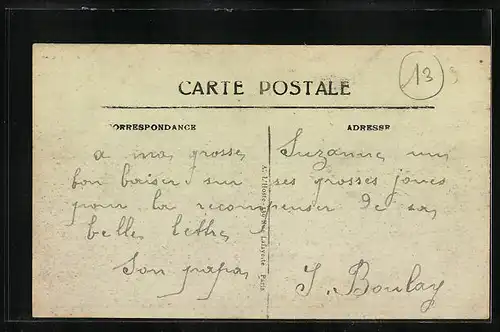 13
CARTE POSTALE
CORRESPONDANCE ADRESSE
a ma grosse Suzanne un
bon baiser sur ses grosses joues
pour la recompenser de sa
belle lettre
Son papa J. Boulay
Rue Lafayette - Paris